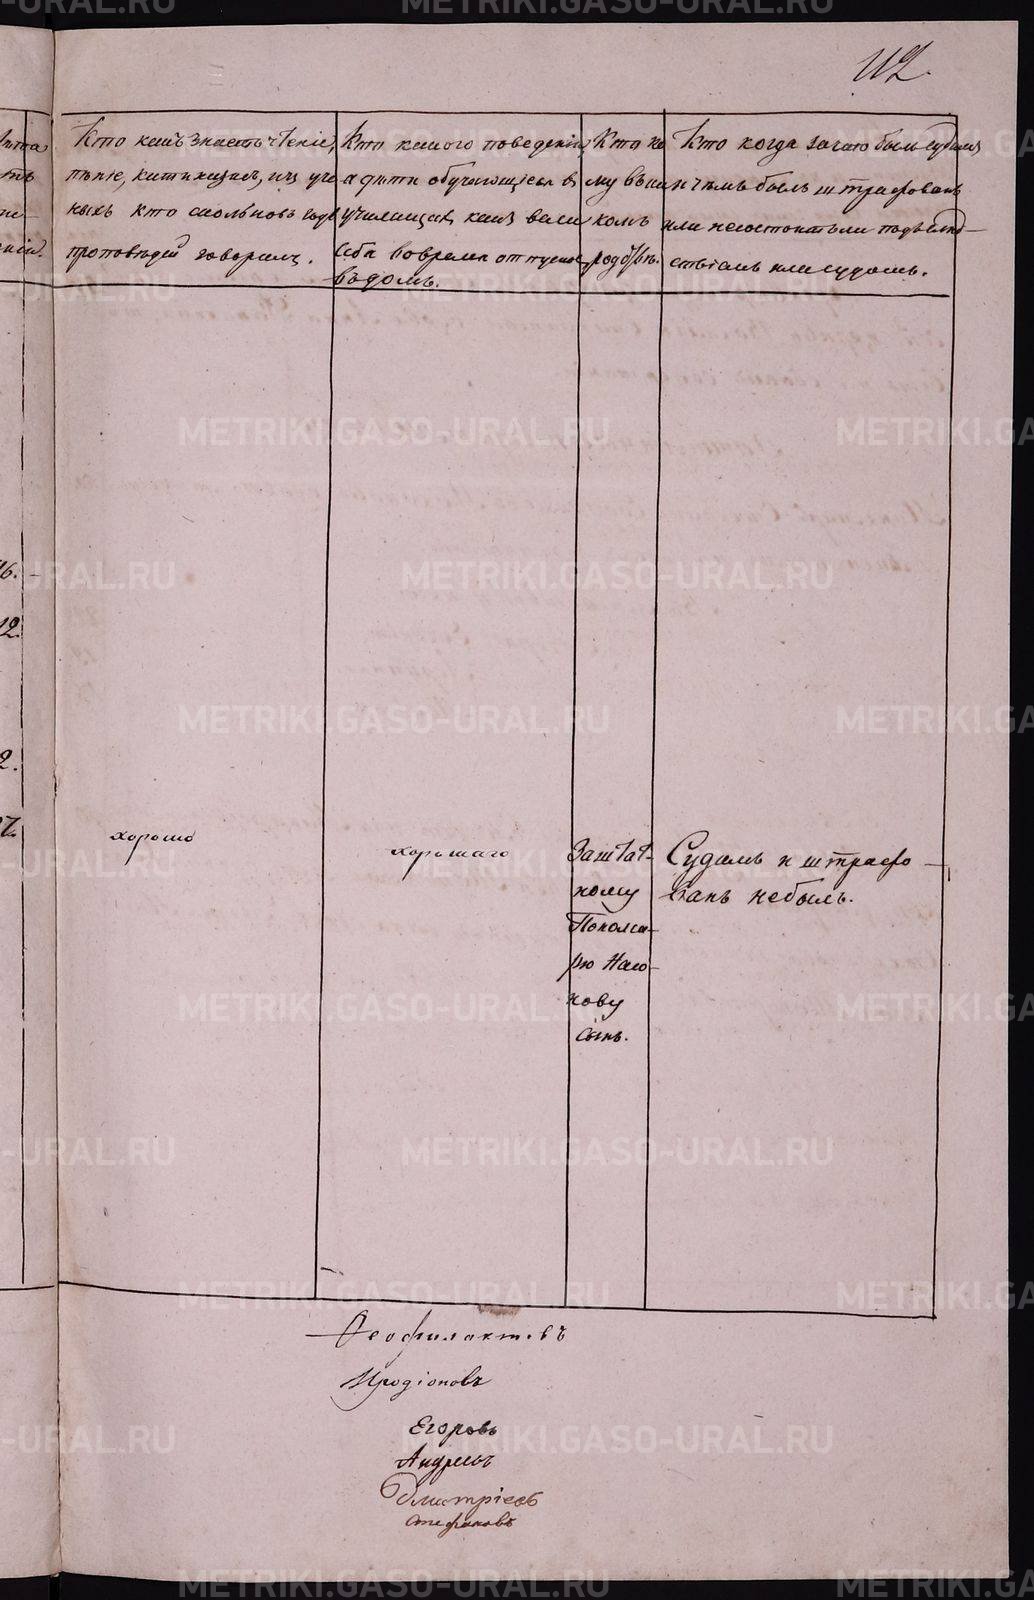 112.
Кто какъ знаетъ чтеніе,
пѣніе, катихизисъ, изъ уче
ныхъ кто сколько въ годъ
проповѣдей говорилъ.
Кто какого поведенія,
а дѣти обучающіеся въ
училищахъ какъ вели
себя во время отпуска
въ домъ.
Кто ко
му въ ка
комъ
родствѣ.
Кто когда за что былъ судимъ
и чѣмъ былъ штрафованъ
или не состоитъ ли подъ слѣд—
ствіемъ или судомъ.
16.
12.
2.
17.
хорошо
хорошаго
Заштат-
ному
Пономa-
рю
нову
сынъ.
Судимъ и штрафо—
ванъ небылъ.
Феофилактовъ
Иродіоновъ
Егоровъ
Андреевъ
Дмитріевъ
Стефановъ
METRIKI.GASO-URAL.RU